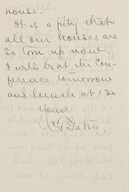 house.
It is a pity that
all our houses are
so torn up now.
I will be at the con-
ference tomorrow
and lunch at 1.30
Yours